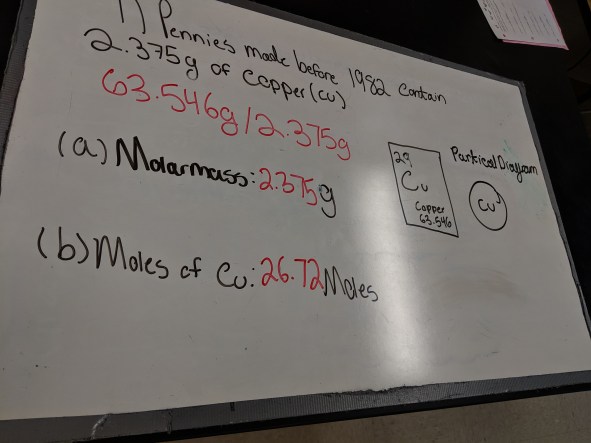 1) Pennies made before 1982 contain
2.375g of Copper (Cu)
63.546g/2.375g
(a) Molarmass: 2.375g
29
Cu
Copper
63.546
Partical Diagram
Cu
(b) Moles of Cu: 26.72 Moles